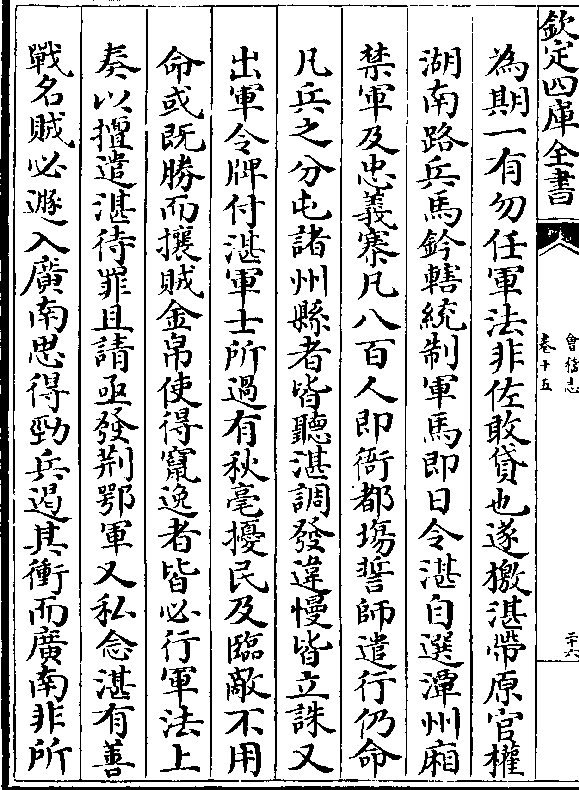 欽定四庫全書
會稽志
卷十五
二十六
為期一有勿任軍法非佐敢貸也遂檄湛帶原官權
湖南路兵馬鈐轄統制軍馬即日令湛自選潭州廂
禁軍及忠義寨凡八百人即衙都塲誓師遣行仍命
凡兵之分屯諸州縣者皆聽湛調發違慢皆立誅又
出軍令牌付湛軍士所過有秋毫擾民及臨敵不用
命或既勝而攘賊金帛使得竄逸者皆必行軍法上
奏以擅遣湛待罪且請亟發荆鄂軍又私念湛有善
戰名賊必遯入廣南思得勁兵遏其衝而廣南非所